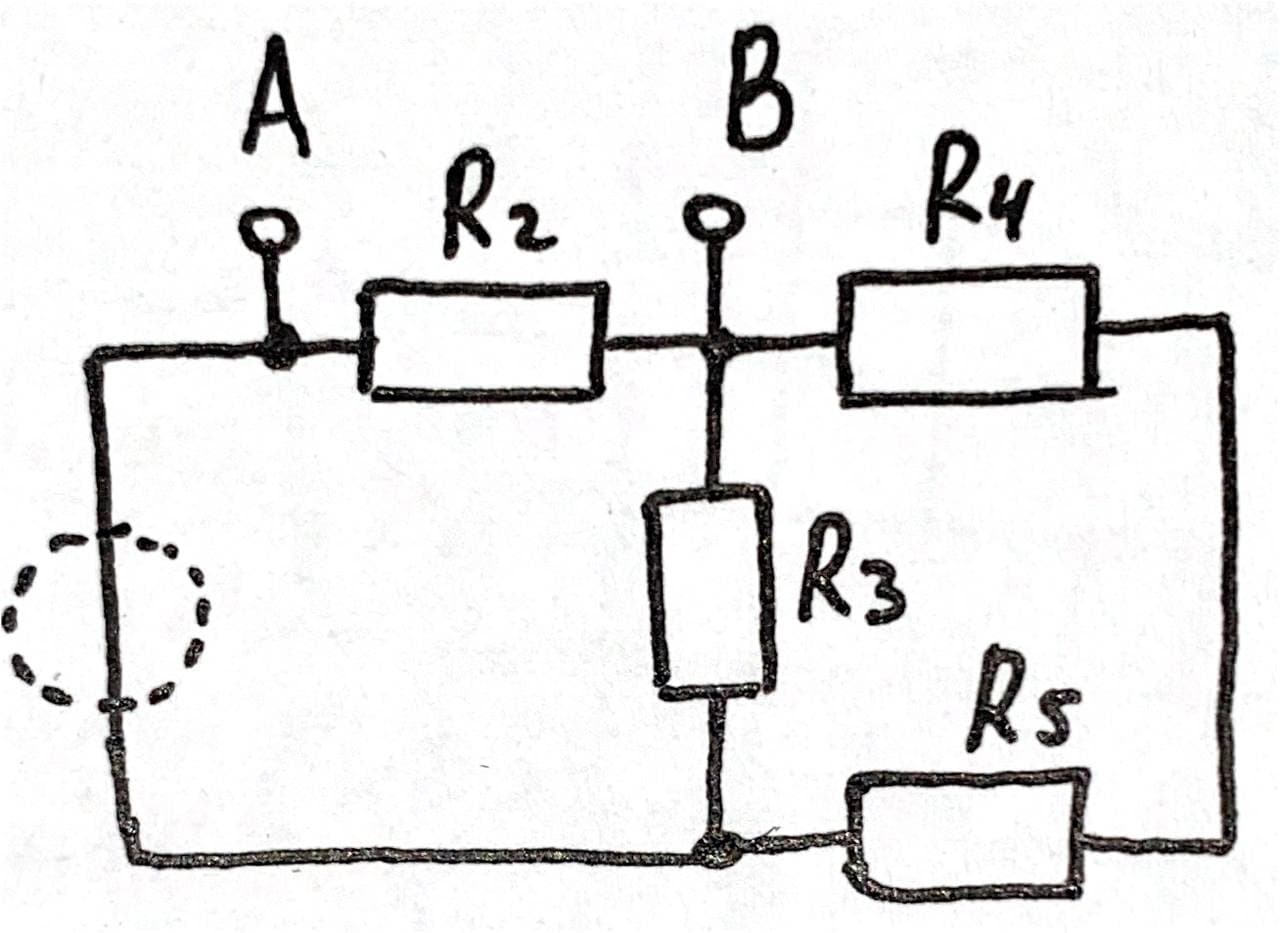 A B
R2 R4
R3
R5